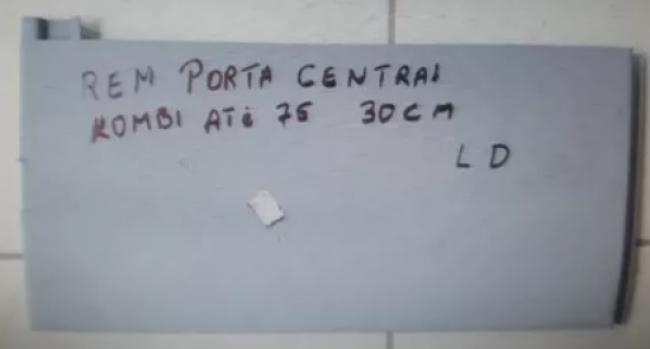 REM PORTA CENTRAL
KOMBI ATÉ 75 30CM
L D